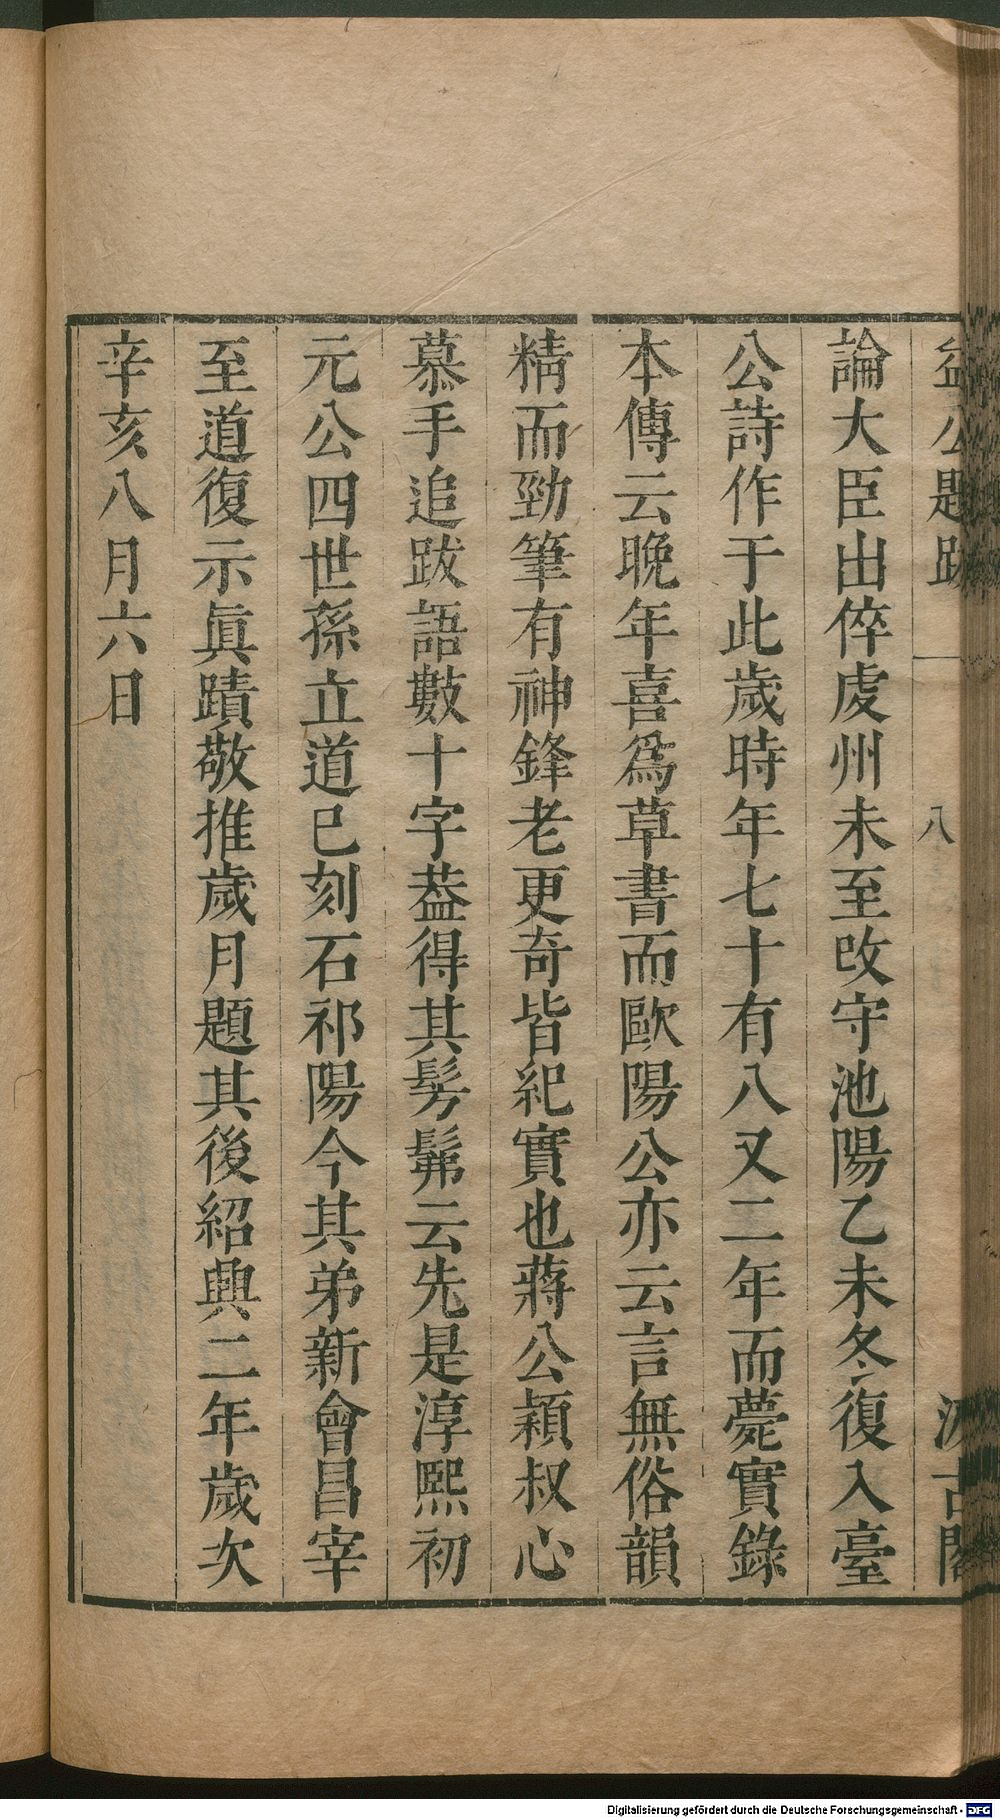 益公題跋 八 汲古閣
論大臣出倅䖍州未至攺守池陽乙未冬復入臺
公詩作于此歲時年七十有八又二年而薨實錄
本傳云晚年喜爲草書而歐陽公亦云言無俗韻
精而勁筆有神鋒老更奇皆紀實也蔣公穎叔心
慕手追跋語數十字葢得其髣髴云先是淳熙初
元公四世孫立道已刻石祁陽今其弟新會昌宰
至道復示眞蹟敬推歲月題其後紹興二年歲次
辛亥八月六日
Digitalisierung gefördert durch die Deutsche Forschungsgemeinschaft - DFG